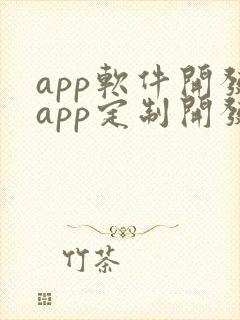 app軟件開發
app定制開發
竹茶